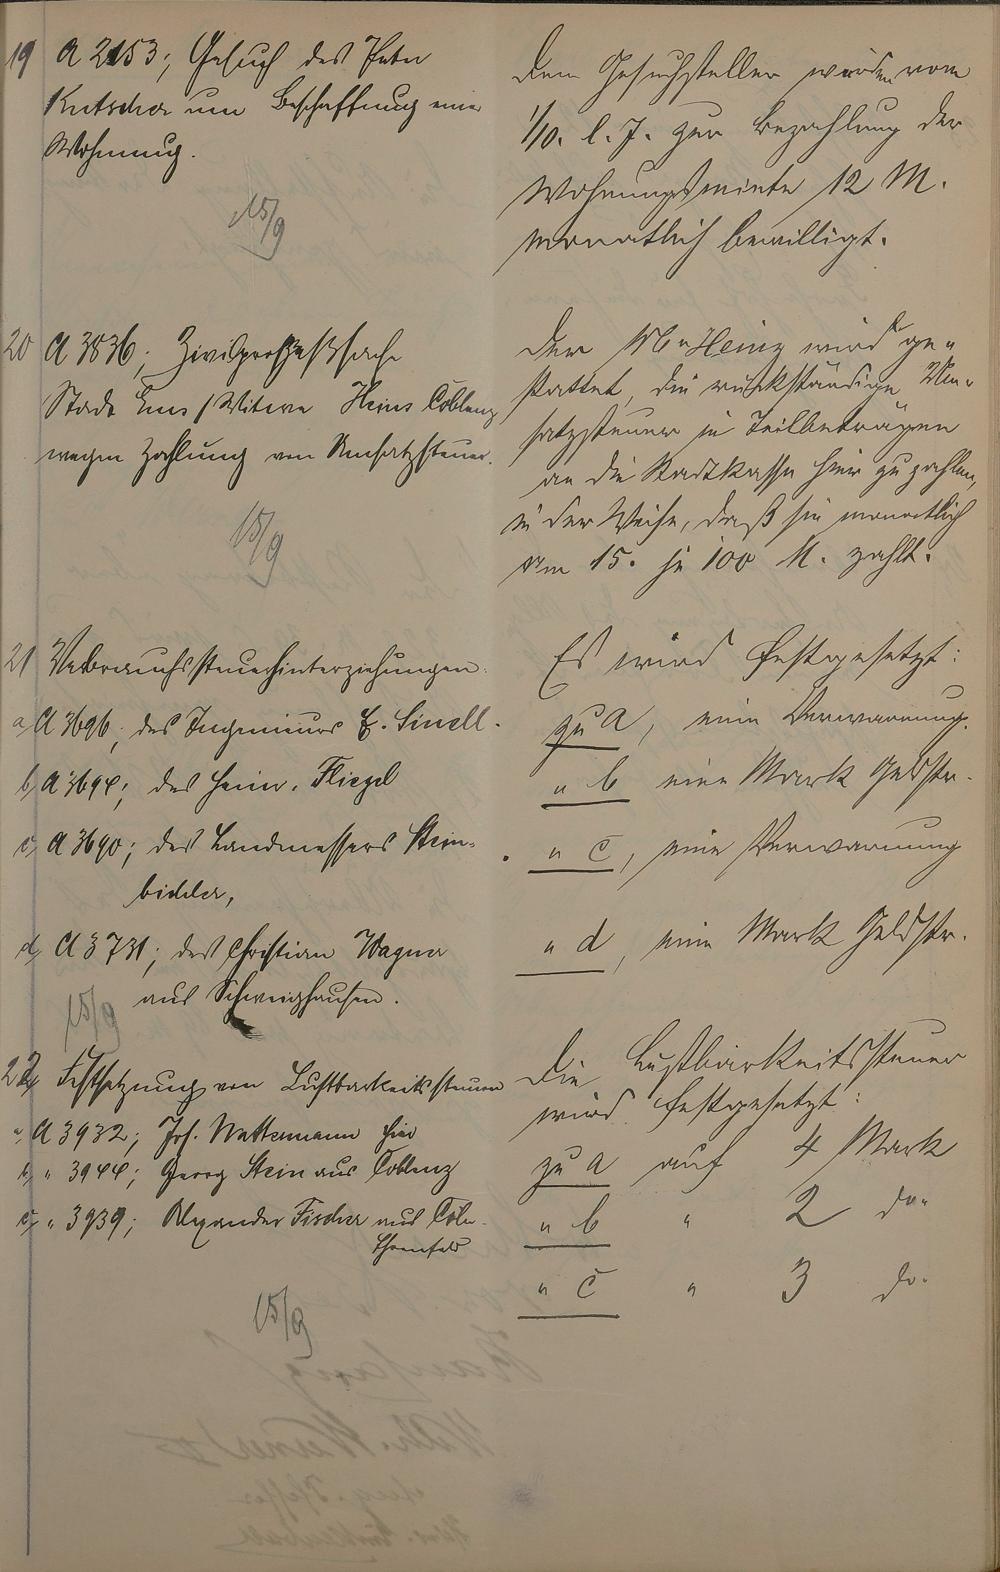 19 A 2153; Gesuch des Peter
Kutscher um Beschaffung einer
Wohnung.
15/9
Dem Gesuchsteller werden vom
1/10. l. J. zur Bezahlung der
Wohnungsmiete 12 M.
monatlich bewilligt.
20 A 3836; Zivilprozeßsache
Stadt Ems / Witwe Heinz Coblenz
wegen Zahlung von Umsatzsteuer.
15/9
Der Heinz wird ge-
stattet, die rückständige Um-
satzsteuer in Teilbeträgen
an die Stadtkasse hier zu zahlen,
in der Weise, daß sie monatlich
am 15. je 100 M. zahlt.
21 Verbrauchssteuerhinterziehungen.
a, A 3696; des Ingenieurs E. Sinell.
b, A 3694; des Heinr. Fliegel
c, A 3690; des Landmessers Stein-
bickler,
d, A 3731; des Christian Wagner
aus Schweighausen.
15/9
Es wird festgesetzt:
zu a, eine Verwarnung.
" b eine Mark Geldstr.
" c, eine Verwarnung
" d, eine Mark Geldstr.
22 Festsetzung von Lustbarkeitssteuern
a, A 3932; Jos. Wattermann hier
b, " 3944; Georg Stein aus Coblenz
c, " 3939; Alexander Fischer aus Cöln-
Ehrenfeld
15/9
Die Lustbarkeitssteuer
wird festgesetzt:
zu a auf 4 Mark
" b " 2 do.
" c " 3 do.